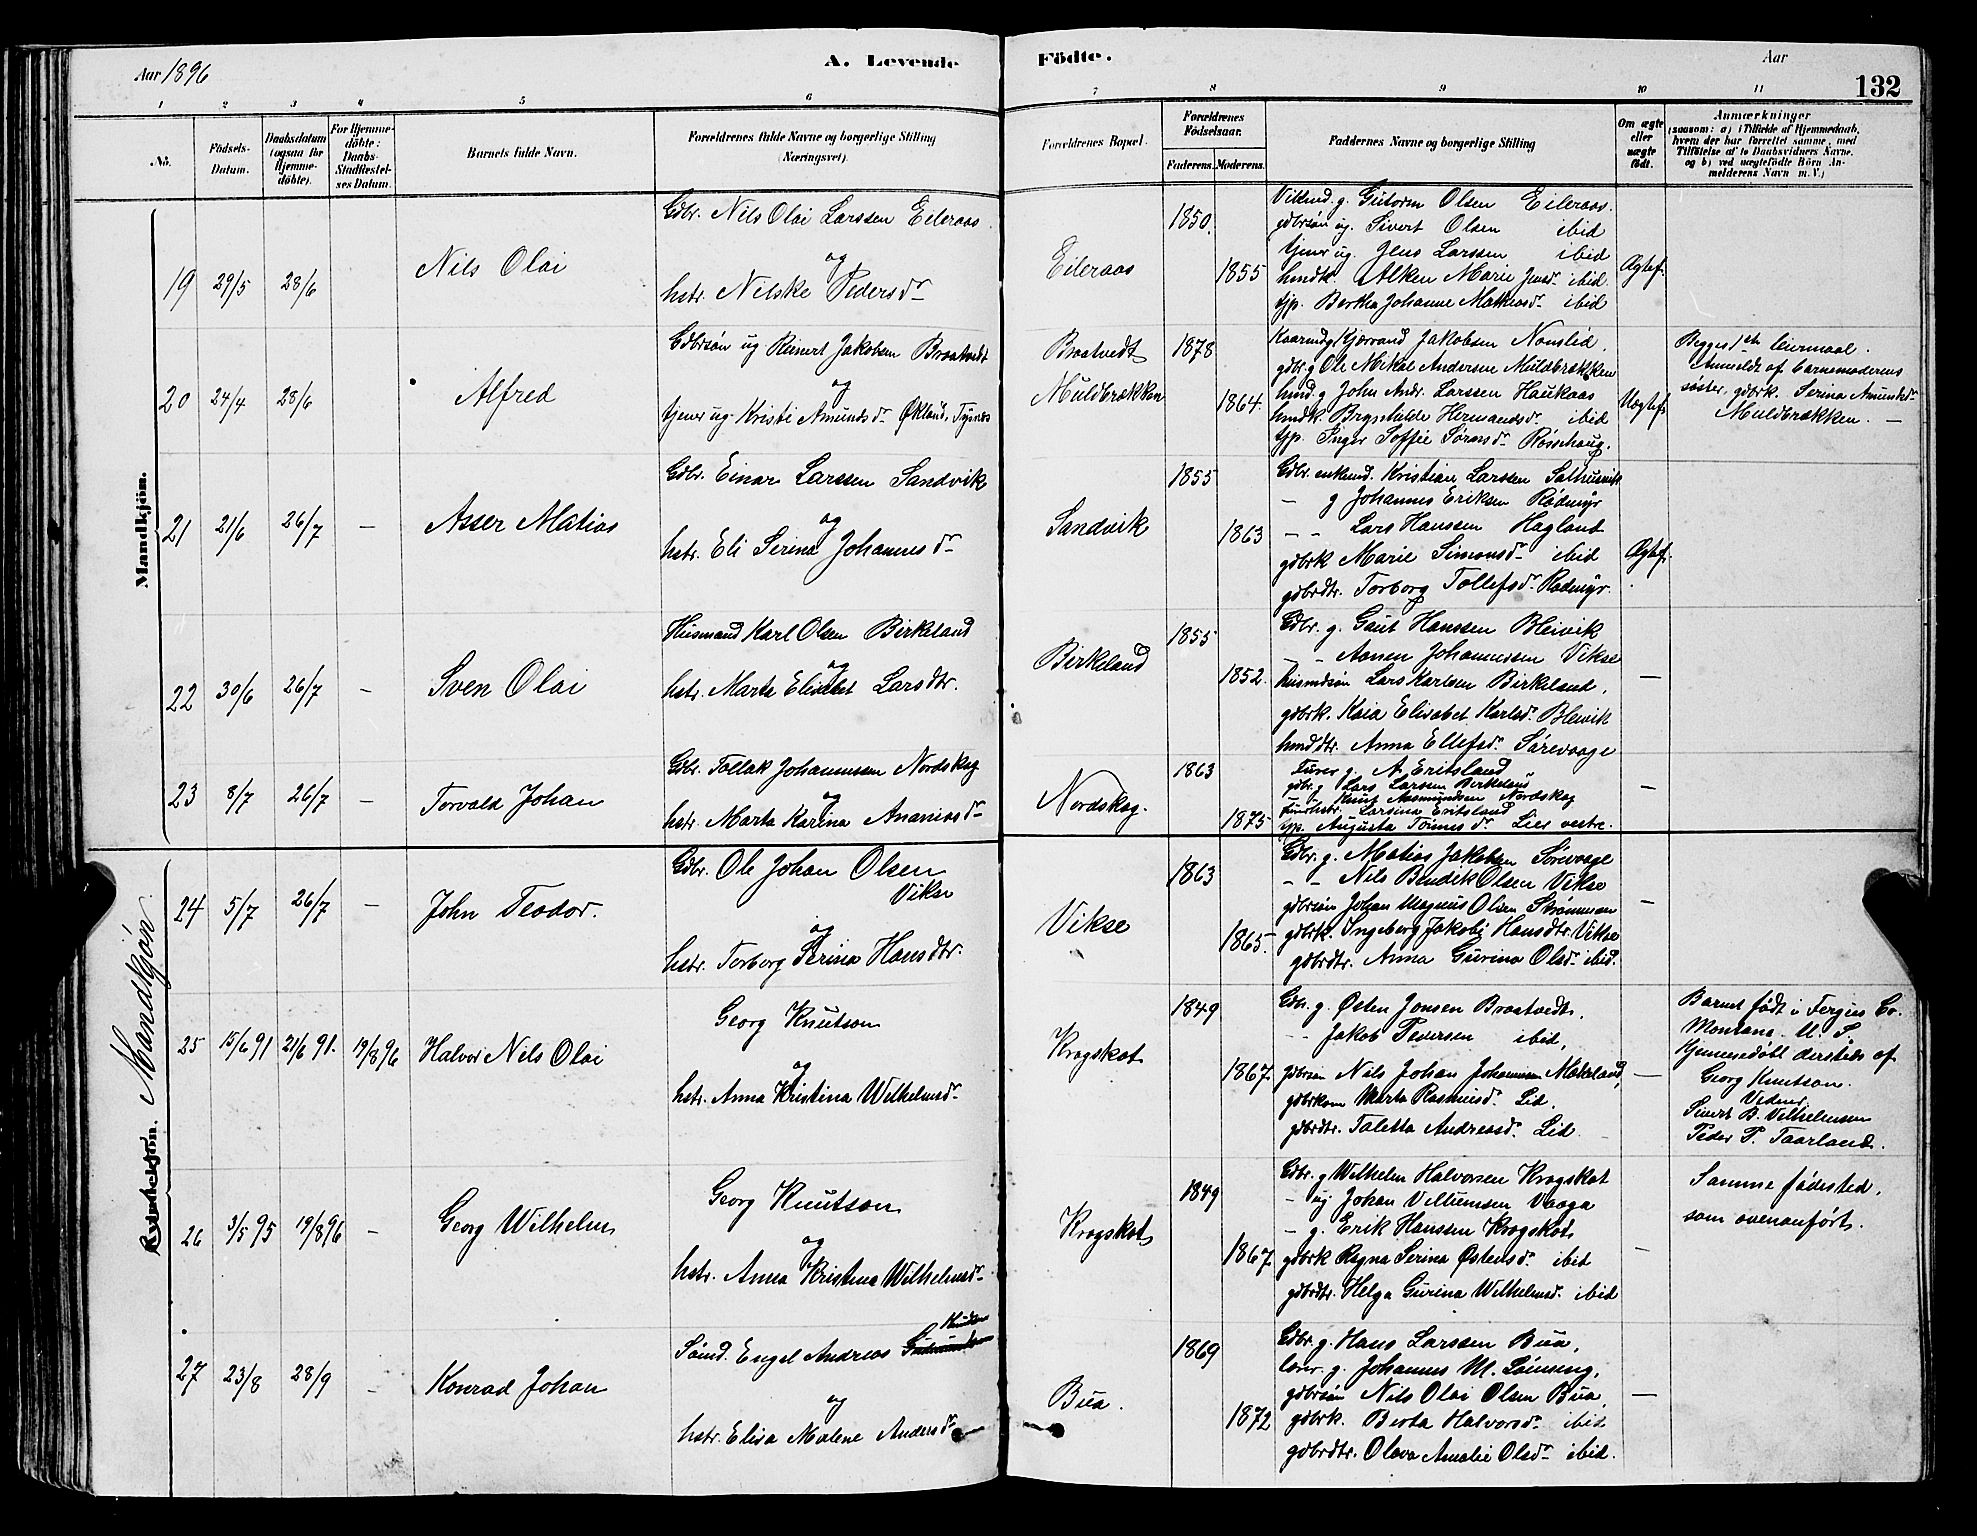 Aar 1896
A. Levende
Födte.
Aar
132
1 2 3 4 5 6 7 8 9 10 11
No.
Födsels-Datum.
Daabsdatum (ogsaa for Hjemme-döbte).
For Hjemme-döbte: Daabs-Stadfæstelses Datum.
Barnets fulde Navn.
Forældrenes fulde Navne og borgerlige Stilling (Næringsvei).
Forældrenes Bopæl.
Forældrenes Födselsaar.
Faderens. Moderens.
Faddernes Navne og borgerlige Stilling
Om ægte eller uægte födt.
Anmærkninger
(saasom: a) i Tilfælde af Hjemmedaab, hvem der har forrettet samme, med Tilföielse af to Daabsvidners Navne, og b) ved uægtefödte Börn Anmelderens Navn m. V.)
Mandkjön.
19 29/5 28/6
Nils Olai
Gdbr. Nils Olai Larssen Eileraas
og
hstr. Nilske Pedersdr
Eileraas
1850.
1855
g. Gutorm Olsen Eileraas.
gdbrsön ug. Sivert Olsen ibid
tjener ug. Jens Larssen ibid
hmdk. Alken Marie Jensdr ibid.
tjp. Bertha Johanne Matteasdr ibid
Ægtef.
20 24/4 28/6
Alfred
Gdbrsön ug Reinert Jakobsen Braatvedt
og
tjener ug. Kristi Amundsdr Økland, Tysnes
Braatvedt
Muldbrækken
1878
1864.
Kaarmdg Kjorvand Jakobsen Nonslid,
gdbr. g Ole Mikal Andersen Muldbrækken
hmd. g John Andr. Larssen Haukaas
hmdk. Brynhilde Hermandsdr ibid
tjp. Inger Soffie Sörensdr Rösshaug.
Uægtef.
Begges 1ste leiermaal.
Anmeldt af barnemoderens
söster, gdbrk. Serina Amundsdr
Muldbrækken. —
21 21/6 26/7 —
Asser Matias
Gdbr. Einar Larssen Sandvik
og
hstr. Eli Serina Johannesdr
Sandvik
1855
1863
Gdbr. enkemd. Kristian Larssen Salhusvik
— g Johannes Eriksen Rödmyr
— — Lars Hanssen Hagland
gdbrk Marie Simonsdr ibid
gdbrdtr. Torborg Tollefsdr Rødmyr.
Ægtef.
22 30/6 26/7 —
Sven Olai
Husmand Karl Olsen Birkeland
og
hstr. Marta Elisabet Larsdtr.
Birkeland
1855
1852.
Gdbr. g. Gaut Hanssen Bleivik
— — Aanen Johannessen Vikse
husmdsön Lars Karlsen Birkeland,
gdbrk. Kaia Elisabet Karlsdr. Bleivik
hmddtr. Anna Ellefsdr. Sörevaage
—
23 8/7 26/7 —
Torvald Johan
Gdbr. Tollak Johannessen Nordskog
og
hstr. Marta Karina Ananiasdr
Nordskog.
1863
1875
g. A. Eritsland
gdbr. g Lars Larssen Birkeland
— — Knut Aasmundsen Nordskog
Larsina Eritsland
tjp. Augusta Tönnesdr. Lier vestre.
—
Mandkjön
Kvindekjön.
24 5/7 26/7 —
John Teodor.
Gdbr. Ole Johan Olsen
Vikse
og
hstr. Torborg Serina Hansdtr.
Vikse
1863
1865.
Gdbr. g. Matias Jakobsen Sörevaage
— — Nils Bendik Olsen Vikse
gdbrsön Johan Magnus Olsen Strömmen
gdbrk. Ingeborg Jakobj Hansdtr. Vikse
gdbrdtr. Anna Gurina Olsdr ibid.
—
25 15/6 91 21/6 91. 19/8 96
Halvor Nils Olai
Georg Knutson
og
hstr. Anna Kristina Wilhelmsdr
Kragskot
1849
1867.
Gdbr. g. Østen Jonsen Braatvedt,
— — Jakob Pedersen ibid,
gdbrsön Nils Johan Johannesen Makeland,
gdbrkone Marta Rasmusdr. Lid,
gdbrdtr. Taletta Andreasdr. Lid
—
Barnet født i Fergus Co.
Montana. U. S.
Hjemmedöbt dersteds af
Georg Knutson.
Vidner
Sivert B. Vilhelmsen
Peder P. Taarland.
26 3/5 95 19/8 96 —
Georg Wilhelm
Georg Knutson
og
hstr. Anna Kristina Wilhelmsdr
Kragskot
1849
1867.
Gdbr. g Wilhelm Halvorsen Kragskot
— ug Johan Villumsen Vaaga
— g. Erik Hanssen Kragskot
gdbrk Ragna Serina Østensdr ibid
gdbrdtr. Helga Gurina Wilhelmsdr. ibid
—
Samme fødested,
som ovenanført.
27 23/8 28/9 —
Konrad Johan
Sömd. Engel Andreas
og
hstr. Elisa Malene Andersdr
Bua.
1869
1872
Gdbr. g. Hans Larssen Bua,
lærer, g. Johannes M. Lönning,
gdbrsön Nils Olai Olsen Bua,
gdbrk. Berta Halvorsdr ibid
gdbrdtr. Olava Amalie Olsdr ibid.
—